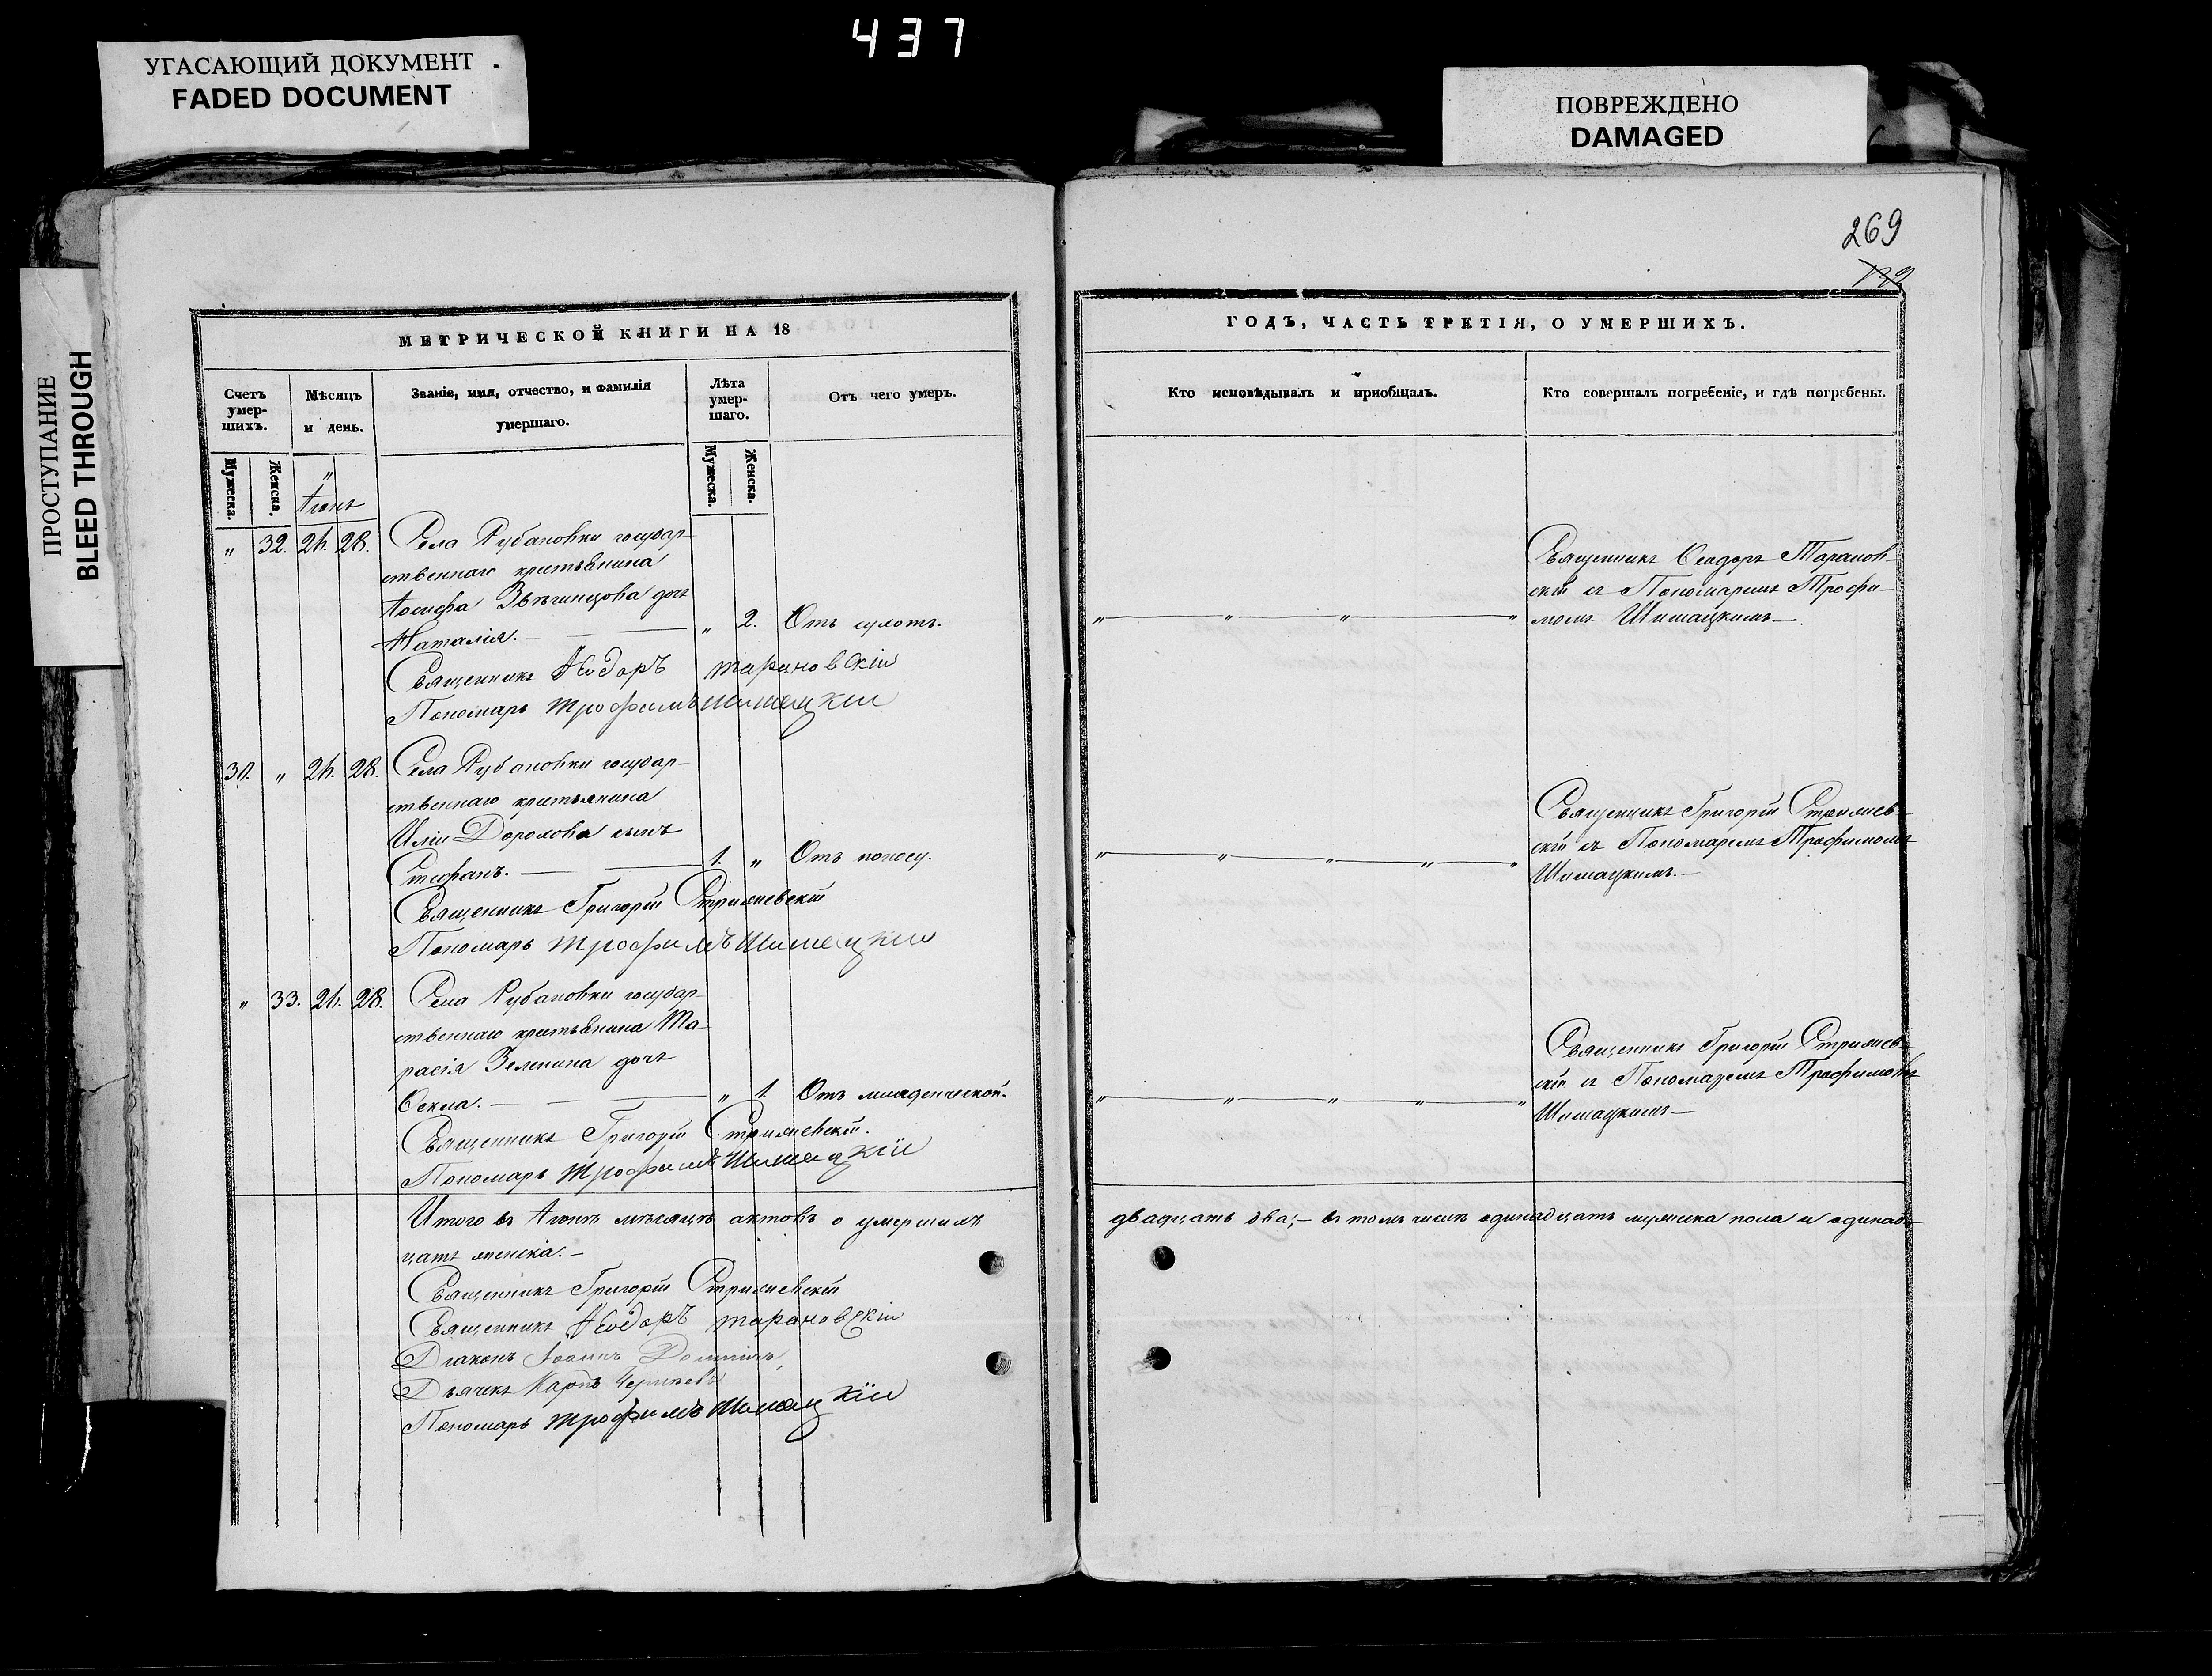 437
УГАСАЮЩИЙ ДОКУМЕНТ
FADED DOCUMENT
ПОВРЕЖДЕНО
DAMAGED
ПРОСТУПАНИЕ
BLEED THROUGH
269
МЕТРИЧЕСКОЙ КНИГИ НА 18
Счетъ умер-шихъ.
Мѣсяцъ и день.
Званіе, имя, отчество, и фамилія умершаго.
Лѣта умер-шаго.
Отъ чего умеръ.
Мужеска.
Женска.
Мужеска.
Женска.
"
Іюнь
" 32. 26. 28. Села Рубановки государ-
ственнаго крестьянина
Іосифа Звѣгинцова дочь
Наталія. — " 2. Отъ
Священникъ Ѳеодоръ Тарановскій
Пономарь Трофимъ Шимацкій
31. " 26. 28. Села Рубановки государ-
ственнаго крестьянина
Иліи сынъ
Стефанъ. — 1. " Отъ поносу.
Священникъ Григорій Стрижевскій
Пономарь Трофимъ Шимацкій
" 33. 26. 28. Села Рубановки государ-
ственнаго крестьянина Та-
расія Зеленина дочь
Ѳекла. — " 1. Отъ младенческой.
Священникъ Григорій Стрижевскій.
Пономарь Трофимъ Шимацкій
Итого въ Іюнѣ мѣсяцѣ актовъ о умершихъ
цать женска. —
Священникъ Григорій Стрижевскій
Священникъ Ѳеодоръ Тарановскій
Діаконъ Іоаннъ
Дьячекъ Карпъ
Пономарь Трофимъ Шимацкій
ГОДЪ, ЧАСТЬ ТРЕТІЯ, О УМЕРШИХЪ.
Кто исповѣдывалъ и пріобщалъ.
Кто совершалъ погребеніе, и гдѣ погребены.
Священникъ Ѳеодоръ Таранов-
скій съ Пономаремъ Трофи-
" " " момъ Шимацкимъ —.
Священникъ Григорій Стрижев-
скій съ Пономаремъ Трофимомъ
" " " " " Шимацкимъ. —
Священникъ Григорій Стрижев-
скій съ Пономаремъ Трофимомъ
" " " " " Шимацкимъ —
двадцать два; — въ томъ числѣ одинадцать мужеска пола и одинад-